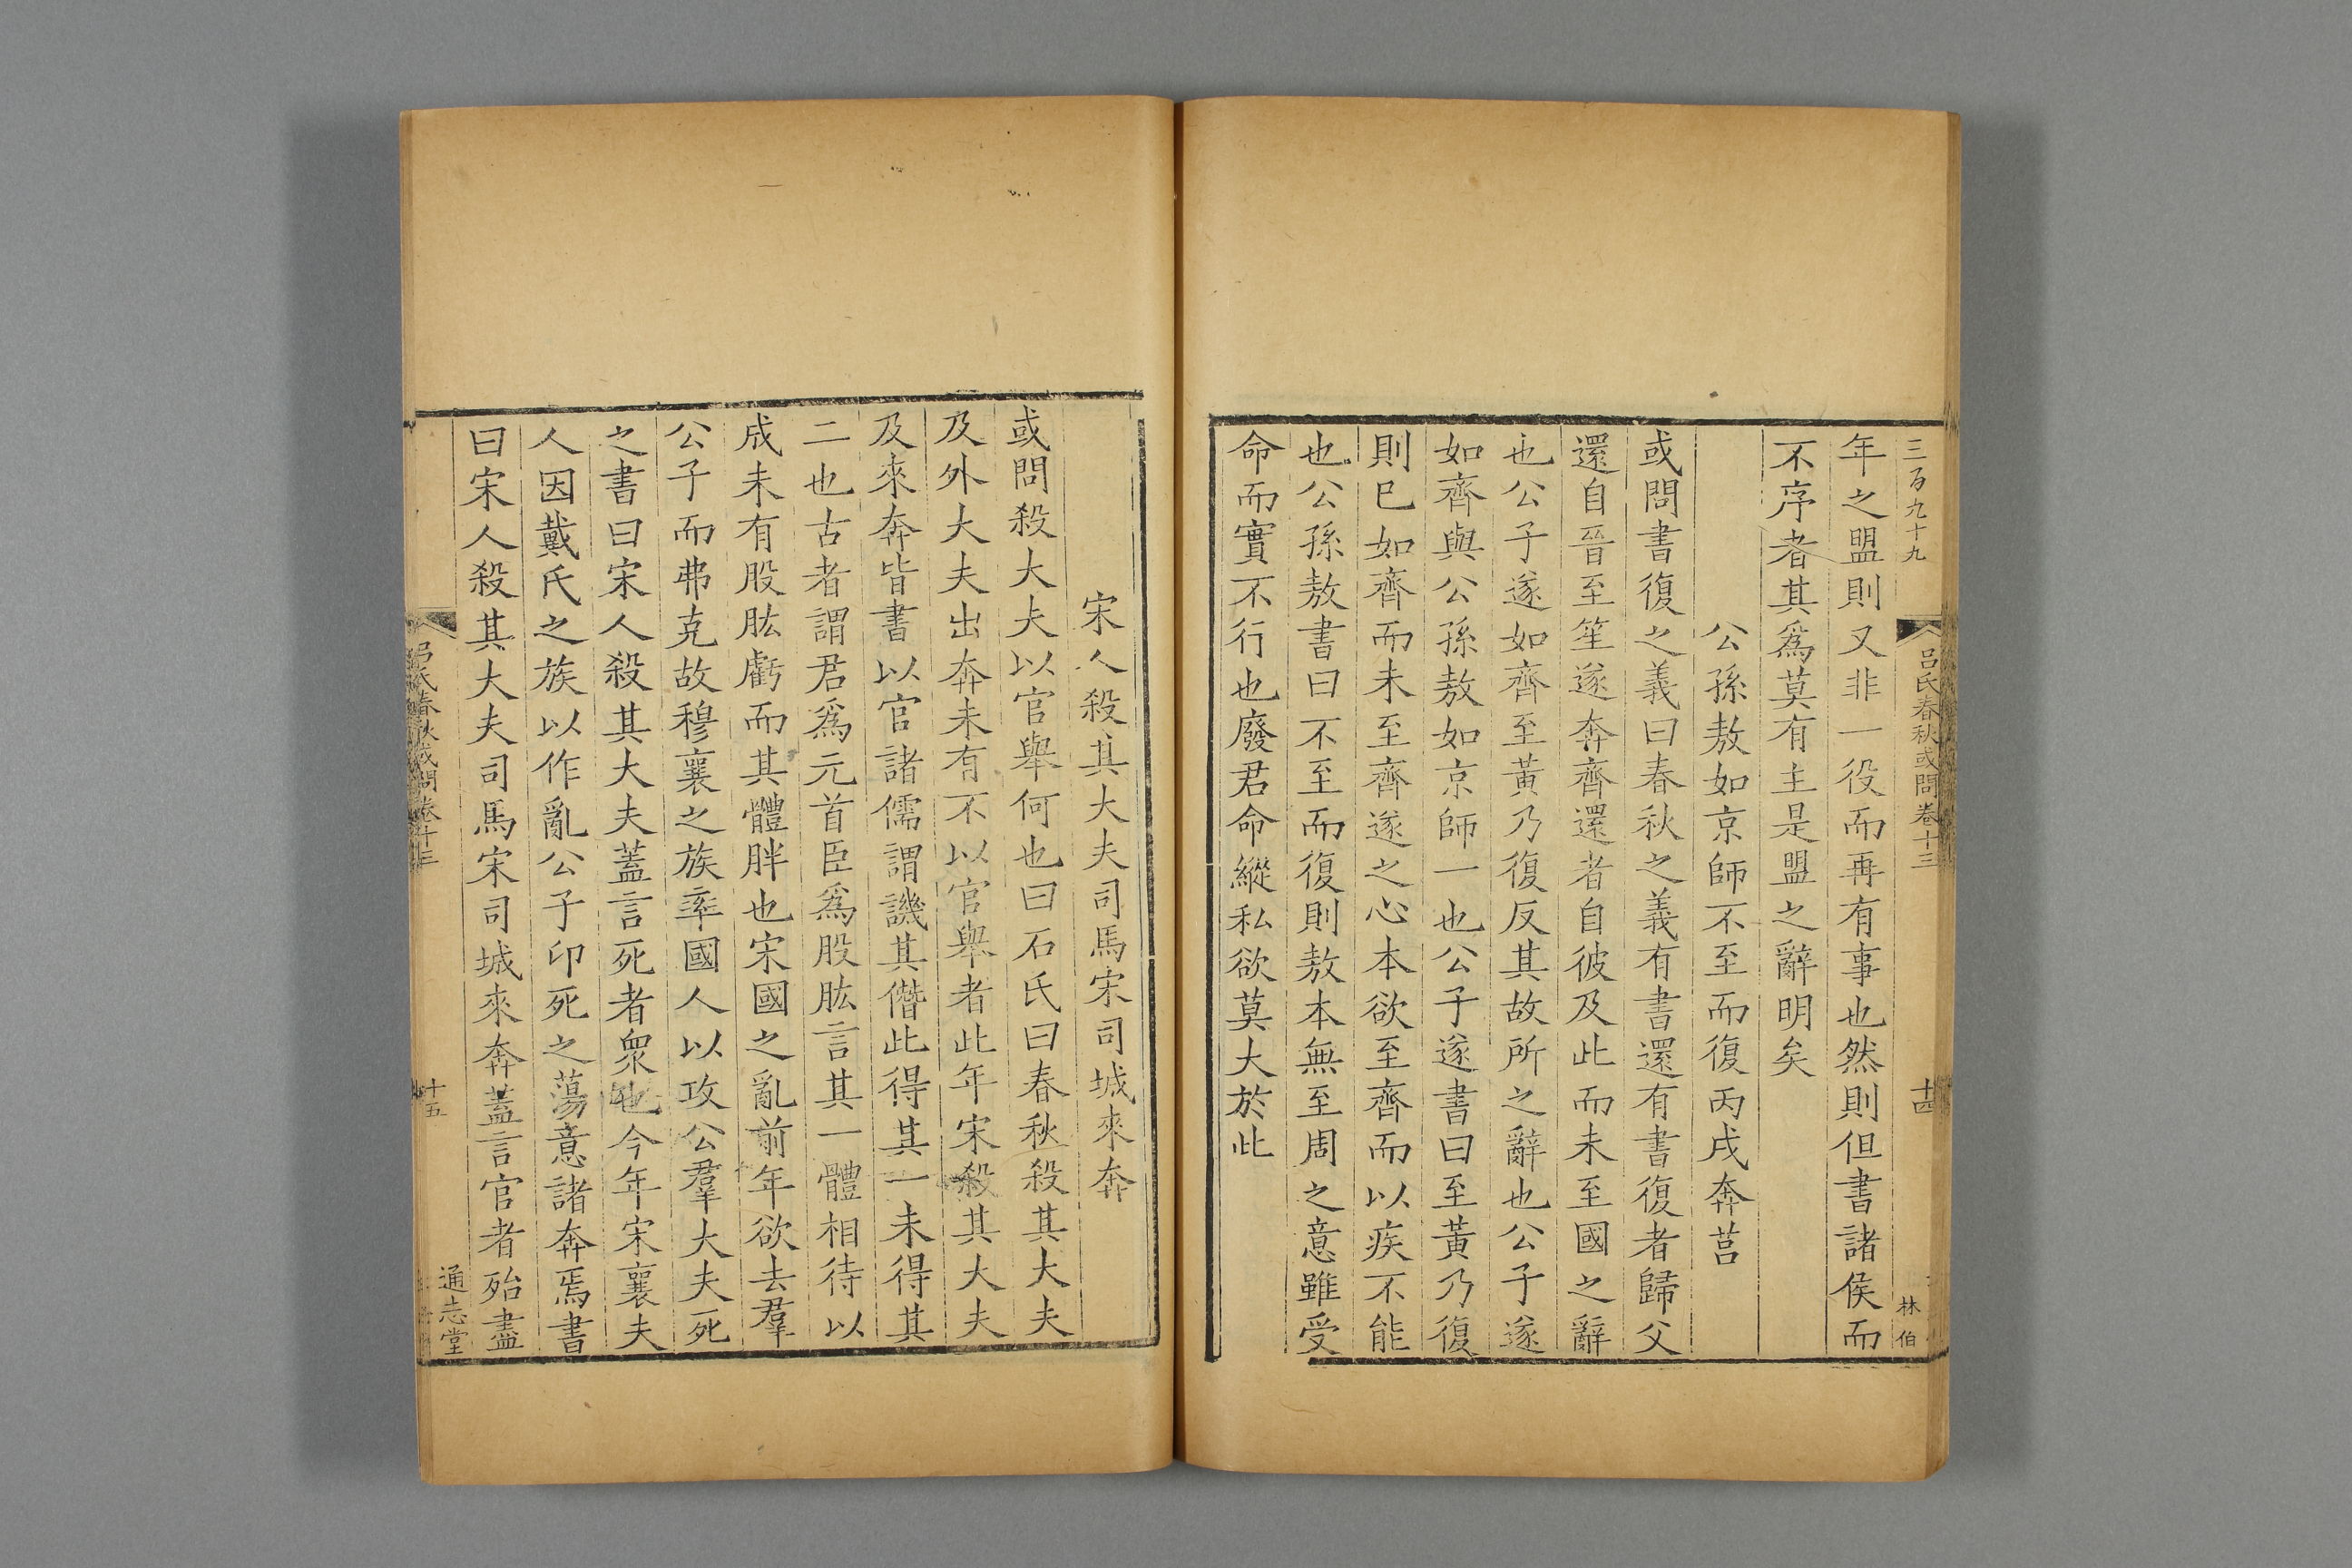 三百九十九
呂氏春秋或問卷十三
十四
林伯
年之盟則又非一役而再有事也然則但書諸侯而
不序者其爲莫有主是盟之辭明矣
公孫敖如京師不至而復丙戌奔莒
或問書復之義曰春秋之義有書還有書復者歸父
還自晉至笙遂奔齊還者自彼及此而未至國之辭
也公子遂如齊至黃乃復反其故所之辭也公子遂
如齊與公孫敖如京師一也公子遂書曰至黃乃復
則已如齊而未至齊遂之心本欲至齊而以疾不能
也公孫敖書曰不至而復則敖本無至周之意雖受
命而實不行也廢君命縱私欲莫大於此
宋人殺其大夫司馬宋司城來奔
或問殺大夫以官舉何也曰石氏曰春秋殺其大夫
及外大夫出奔未有不以官舉者此年宋殺其大夫
及來奔皆書以官諸儒謂譏其僭此得其一未得其
二也古者謂君爲元首臣爲股肱言其一體相待以
成未有股肱虧而其體胖也宋國之亂前年欲去羣
公子而弗克故穆襄之族率國人以攻公羣大夫死
之書曰宋人殺其大夫蓋言死者衆也今年宋襄夫
人因戴氏之族以作亂公子印死之蕩意諸奔焉書
曰宋人殺其大夫司馬宋司城來奔蓋言官者殆盡
呂氏春秋或問卷十三
十五
通志堂